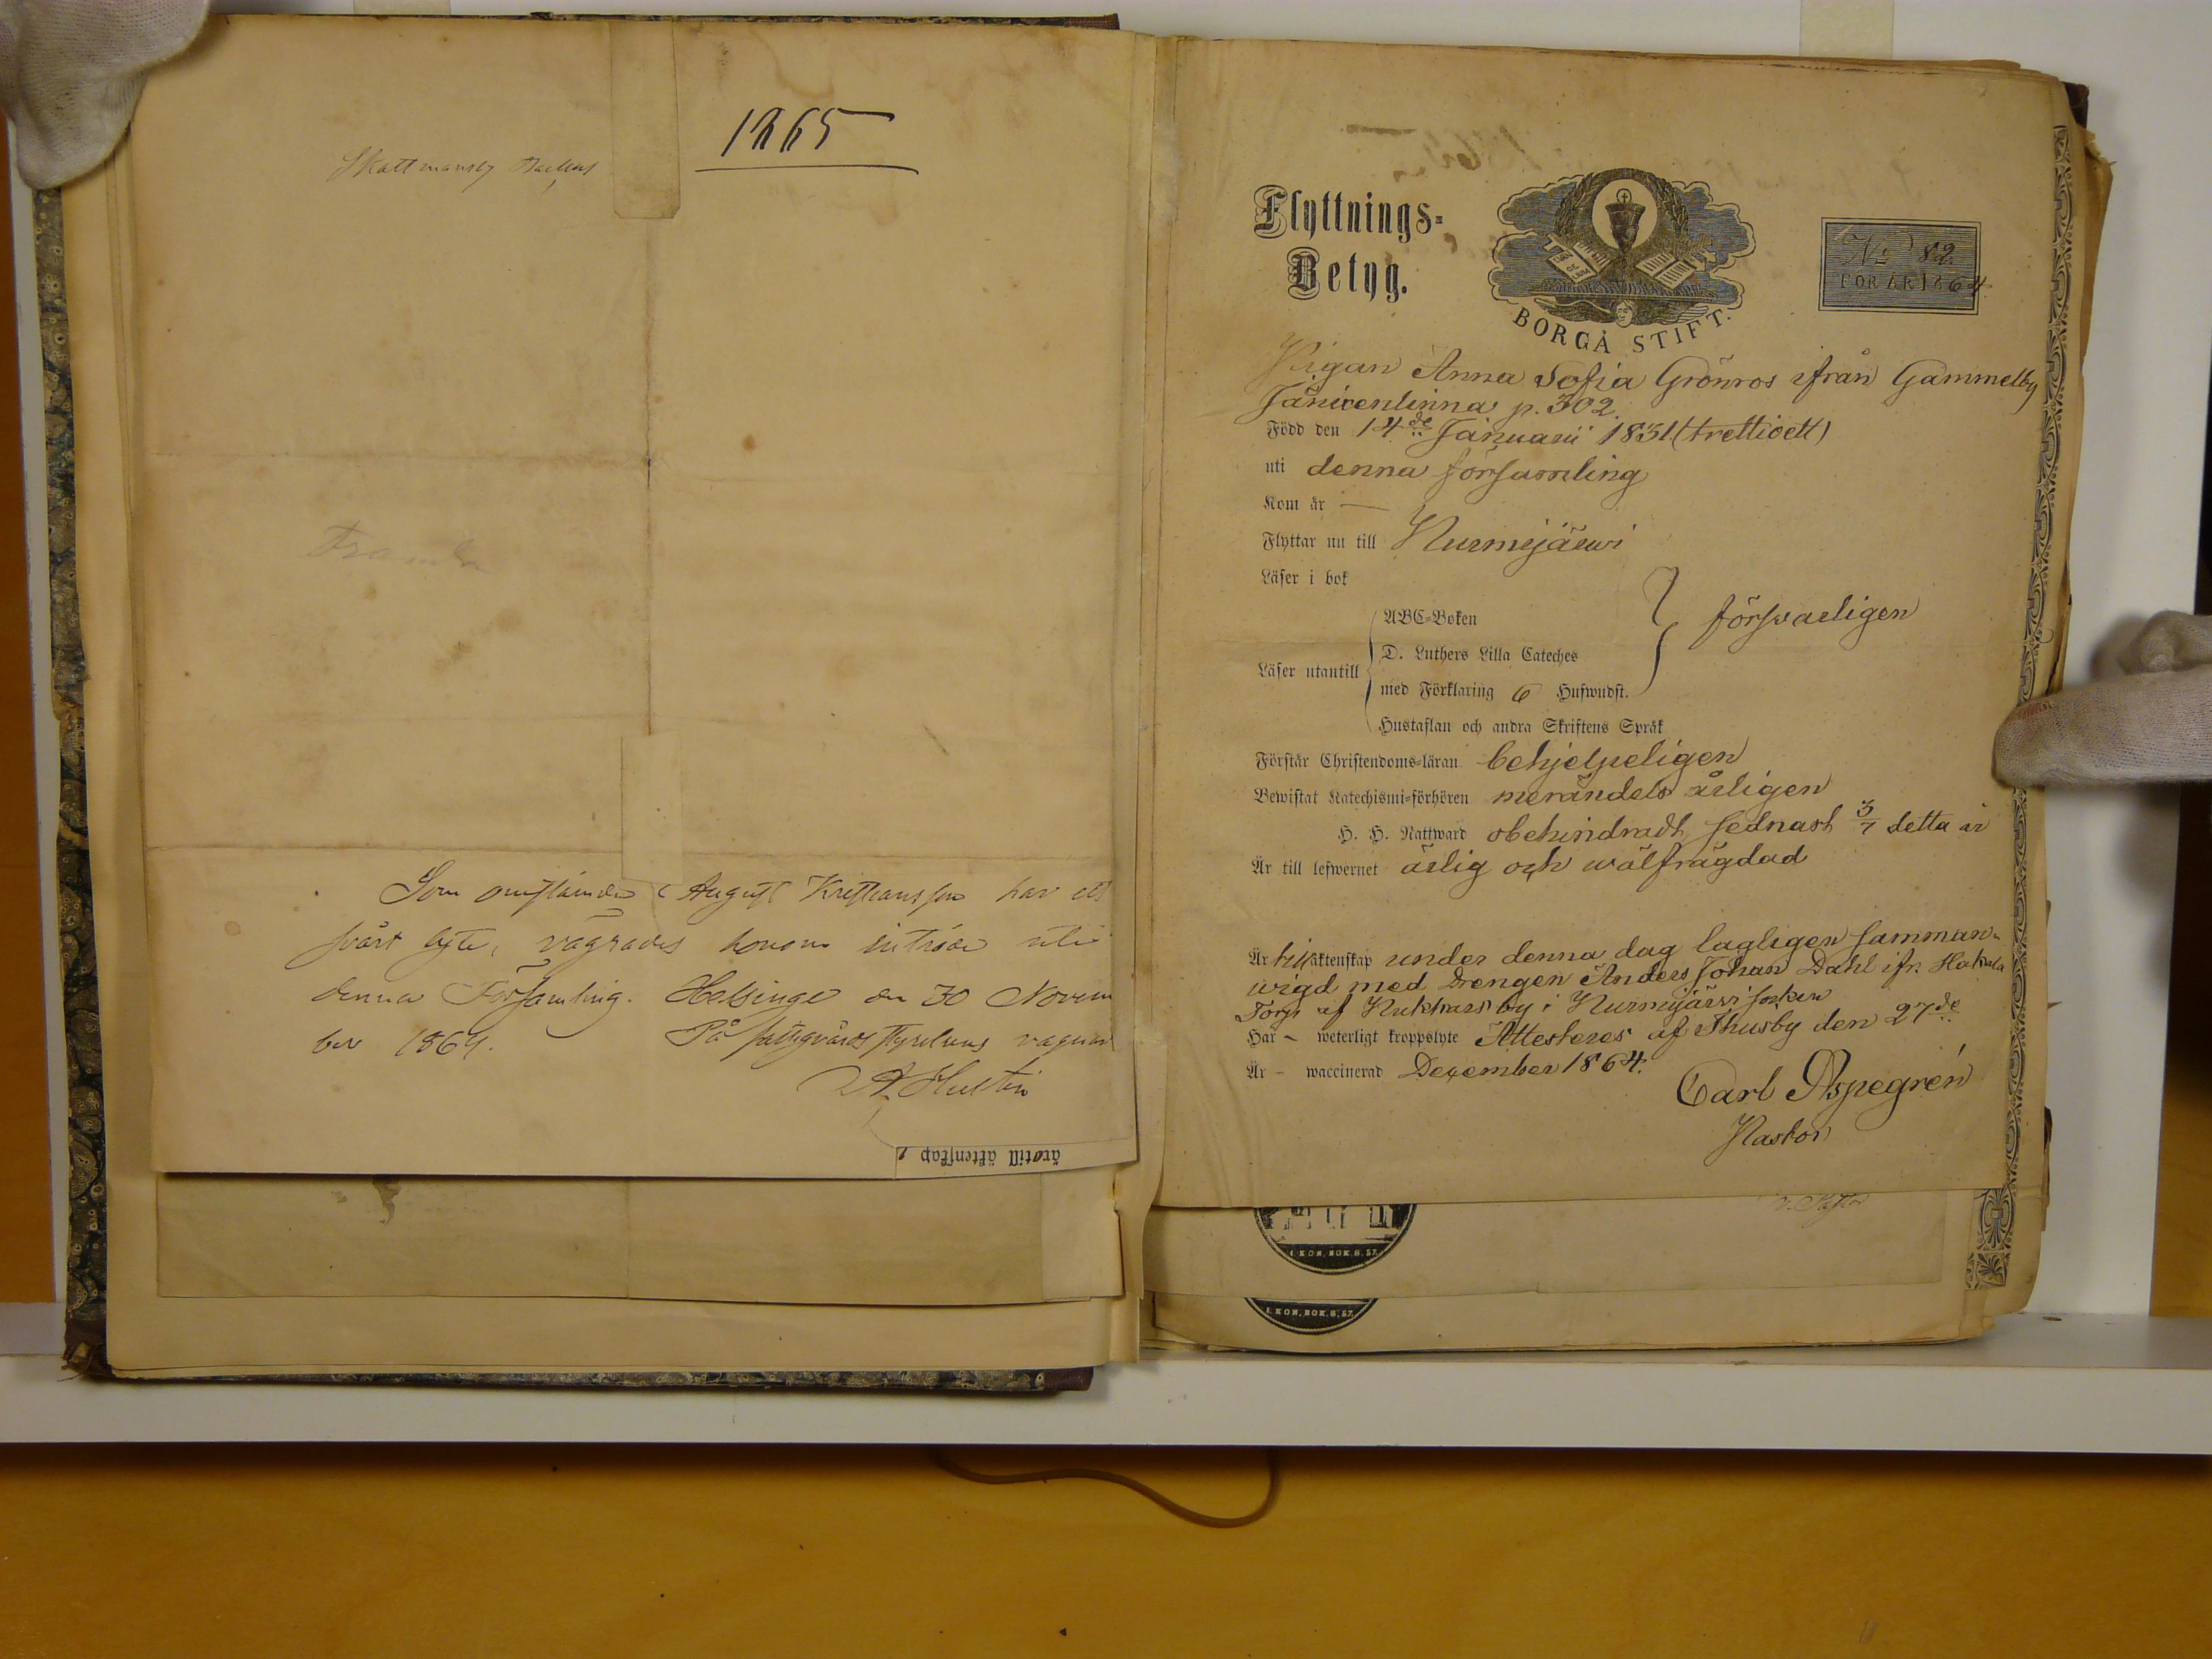 1865
Skattmansby Backas
Som omstämde August Kristiansson har ett
svårt lyte, vägrades honom inträde uti
denna Församling. Helsinge den 30 Novem
ber 1864. På fattigvårds styrelsens vägnar
A. Hultin
äro till äktenskap
Flyttnings-
Betyg.
BORGÅ STIFT.
No 82.
FÖR ÅR 1864.
Pigan Anna Sofia Grönros ifrån Gammelby
Jänixenlinna p. 302.
Född den 14de Januarii 1831 (trettioett)
uti denna församling
Kom år —
Flyttar nu till Nurmijärwi
Läser i bok
ABC-Boken
D. Luthers Lilla Cateches
försvarligen
Läser utantill
med Förklaring 6 Hufwudst.
Hustaflan och andra Skriftens Språk
Förstår Christendoms-läran behjelpeligen
Bewistat Katechismi-förhören merändels årligen
H. H. Nattward obehindradt, sednast 3/7 detta år
Är till lefwernet ärlig och wälfrägdad
Är till äktenskap under denna dag lagligen samman-
wigd med Drengen Anders Johan Dahl ifr. Hakala
Torp af Nukhars by i Nurmijärwi socken
Har – weterligt kroppslyte Attesteres af Thusby den 27de
Är – waccinerad December 1864.
Carl Aspegrén
Pastor
v. Pastor
I. KON. BOK. 8, 57.
I. KON. BOK. 8, 57.